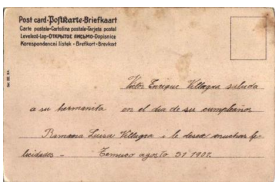 Post card-Postkarte-Briefkaart
Carte postale-Cartolina postale-Tarjeta postal
Levelező-Lap-Открытое письмо-Dopisnice
Korespondencni listek-Brefkort-Brevkort
Víctor Enrique Villagra saluda
a su hermanita en el día de su cumpleaños
Ramona Luisa Villagra i le desea muchas fe
licidades - Temuco agosto 31 1911.